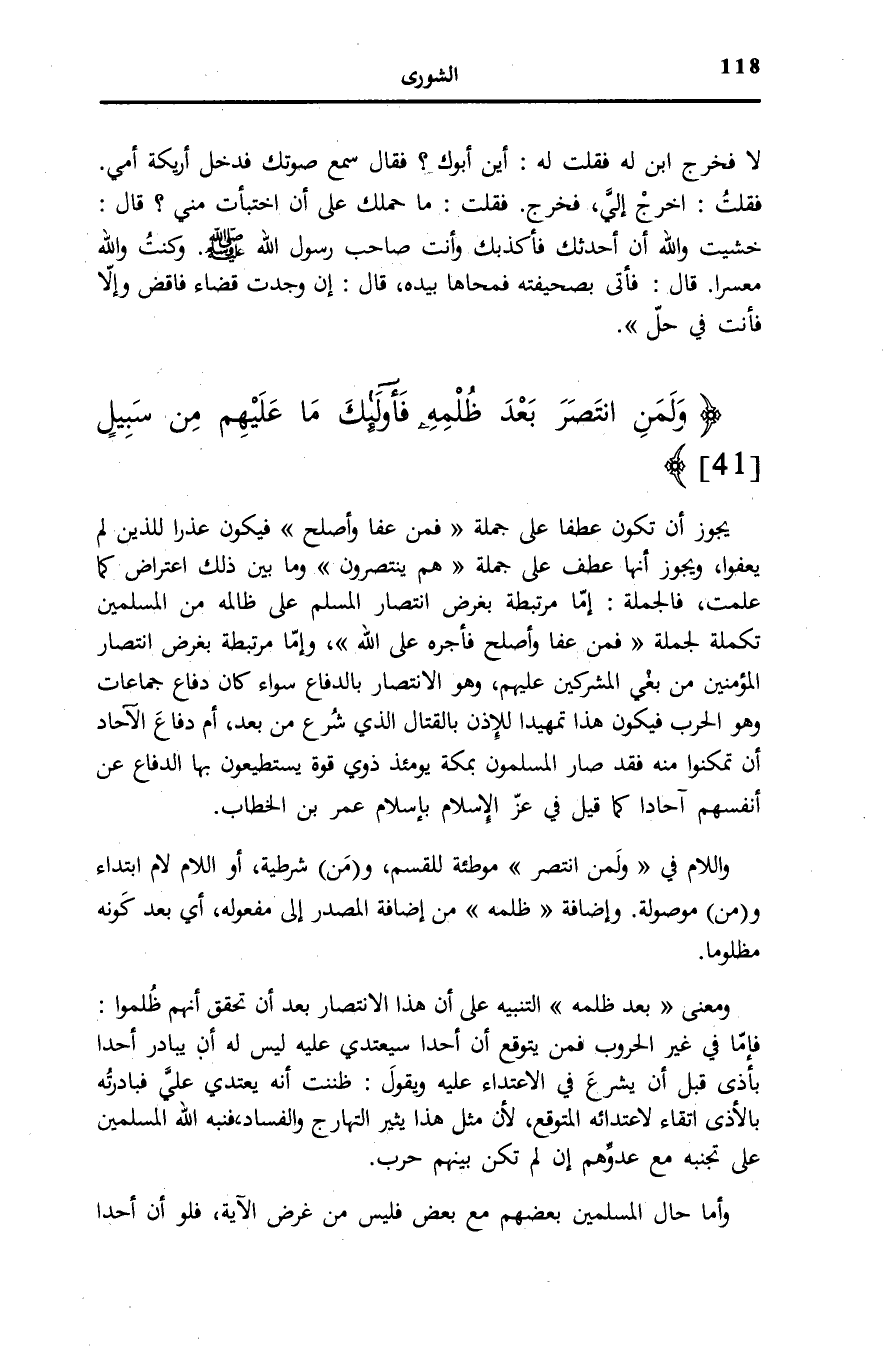 118
الشورى
لا فخرج ابن له فقلت له : أين أبوك ؟ فقال سمع صوتك فدخل أريكة أمي.
فقلتُ : اخرجْ إليَّ، فخرج. فقلت : ما حملك على أن اختبأت مني ؟ قال :
خشيت والله أن أحدثك فأكذبك وأنت صاحب رسول الله ﷺ. وكنتُ والله
معسرا. قال : فأتى بصحيفته فمحاها بيده، قال : إن وجدت قضاء فاقض وإلّا
فأنت في حلّ ».
﴿ وَلَمَنِ انتَصَرَ بَعْدَ ظُلْمِهِۦ فَأُولَٰٓئِكَ مَا عَلَيْهِم مِن سَبِيلٍ
[41] ﴾
يجوز أن تكون عطفا على جملة « فمن عفا وأصلح » فيكون عذرا للذين لم
يعفوا، ويجوز أنها عطف على جملة « هم ينتصرون » وما بين ذلك اعتراض كما
علمت، فالجملة : إمّا مرتبطة بغرض انتصار المسلم على ظالمه من المسلمين
تكملة لجملة « فمن عفا وأصلح فأجره على الله »، وإمّا مرتبطة بغرض انتصار
المؤمنين من بغْي المشركين عليهم، وهو الانتصار بالدفاع سواء كان دفاع جماعات
وهو الحرب فيكون هذا تمهيدا للإذن بالقتال الذي شُرع من بعد، أم دفاعَ الآحاد
أن تمكنوا منه فقد صار المسلمون بمكة يومئذ ذوي قوة يستطيعون بها الدفاع عن
أنفسهم آحادا كما قيل في عزّ الإسلام بإسلام عمر بن الخطاب.
واللام في « ولَمن انتصر » موطئة للقسم، و(مَن) شرطية، أو اللام لام ابتداء
و(من) موصولة. وإضافة « ظلمه » من إضافة المصدر إلى مفعوله، أي بعد كَونه
مظلوما.
ومعنى « بعد ظلمه » التنبيه على أن هذا الانتصار بعد أن تحقق أنهم ظُلموا :
فإمّا في غير الحروب فمن يتوقع أن أحدا سيعتدي عليه ليس له أن يبادر أحدا
بأذى قبل أن يشرعَ في الاعتداء عليه ويقولَ : ظننت أنه يعتدي عليَّ فبادرتُه
بالأذى اتقاء لاعتدائه المتوقع، لأن مثل هذا يثير التهارج والفساد،فنبه الله المسلمين
على تجنبه مع عدوِّهم إن لم تكن بينهم حرب.
وأما حال المسلمين بعضهم مع بعض فليس من غرض الآية، فلو أن أحدا